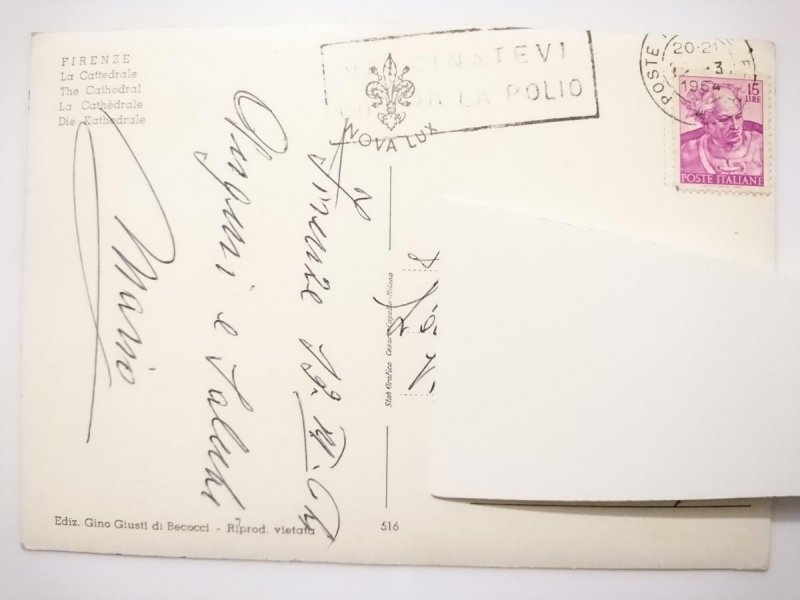 FIRENZE
La Cattedrale
The Cathedral
La Cathédrale
Die Kathedrale
LA POLIO
NOVA LUX
POSTE
20-21
3
1964
15
LIRE
POSTE ITALIANE
Firenze 19.
Auguri e Saluti
Mario
Stab Grafico Cesare Capello-Milano
Ediz. Gino Giusti di Becocci - Riprod. vietata
516